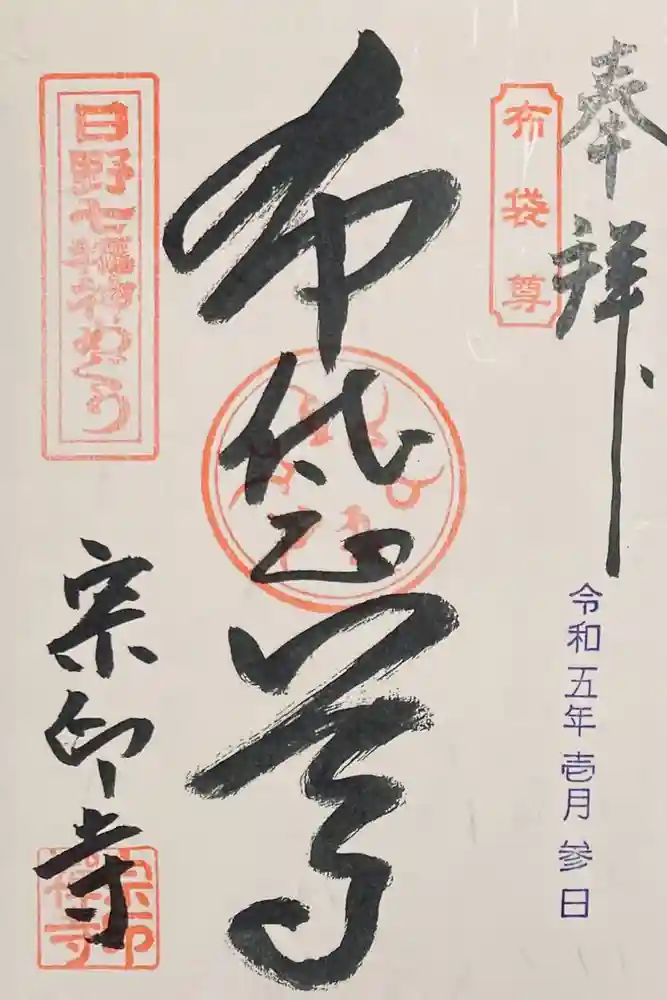 奉拝
令和五年壱月参日
布袋尊
布袋尊
日野七福神めぐり
宗印寺